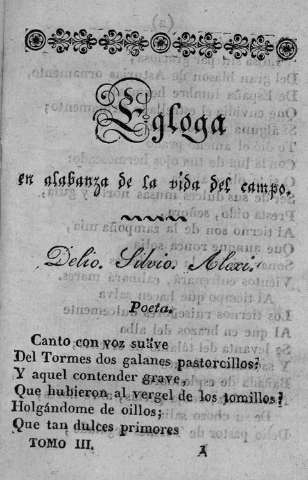 Egloga
en alabanza de la vida del campo.
Delio. Silvio. Alexi.
Poeta.
Canto con voz suave
Del Tormes dos galanes pastorcillos;
Y aquel contender grave,
Que hubieron al vergel de los tomillos:
Holgándome de oillos;
Que tan dulces primores
TOMO III. A